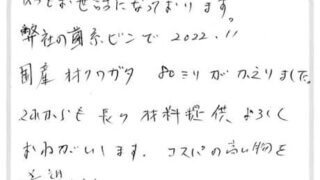 いつもお世話になっております。
弊社の菌糸ビンで 2022.11
国産 オオクワガタ 80ミリがかえりました。
これからも 良い 材料提供 よろしく
おねがいします。コスパの高い物を